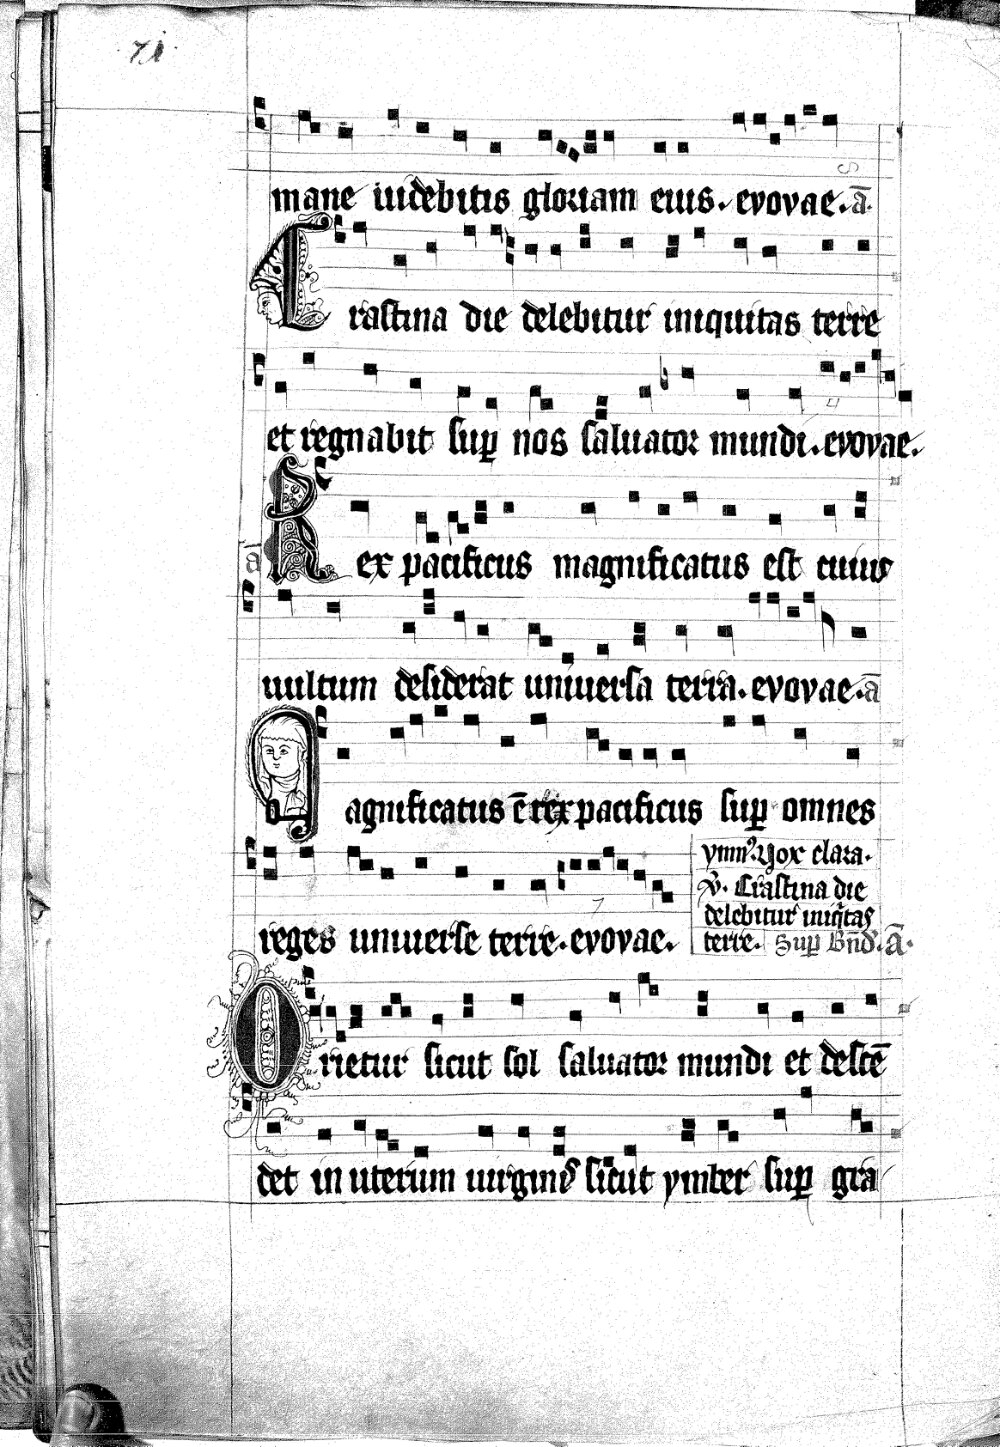 71
mane uidebitis gloriam eius. evovae. a̅.
Crastina die delebitur iniquitas terre
et regnabit sup̱ nos saluator mundi. evovae.
a̅
Rex pacificus magnificatus est cuius
uultum desiderat uniuersa terra. evovae. a̅
Magnificatus ē rex pacificus sup̱ omnes
reges uniuerse terre. evovae.
ymn⁹. Uox clara.
℣. Crastina die
delebitur iniq̇tas
terre. Sup̱ Bn̄d. A̅.
Orietur sicut sol saluator mundi et descē
det in uterum uirginis sicut ymber sup̱ gra